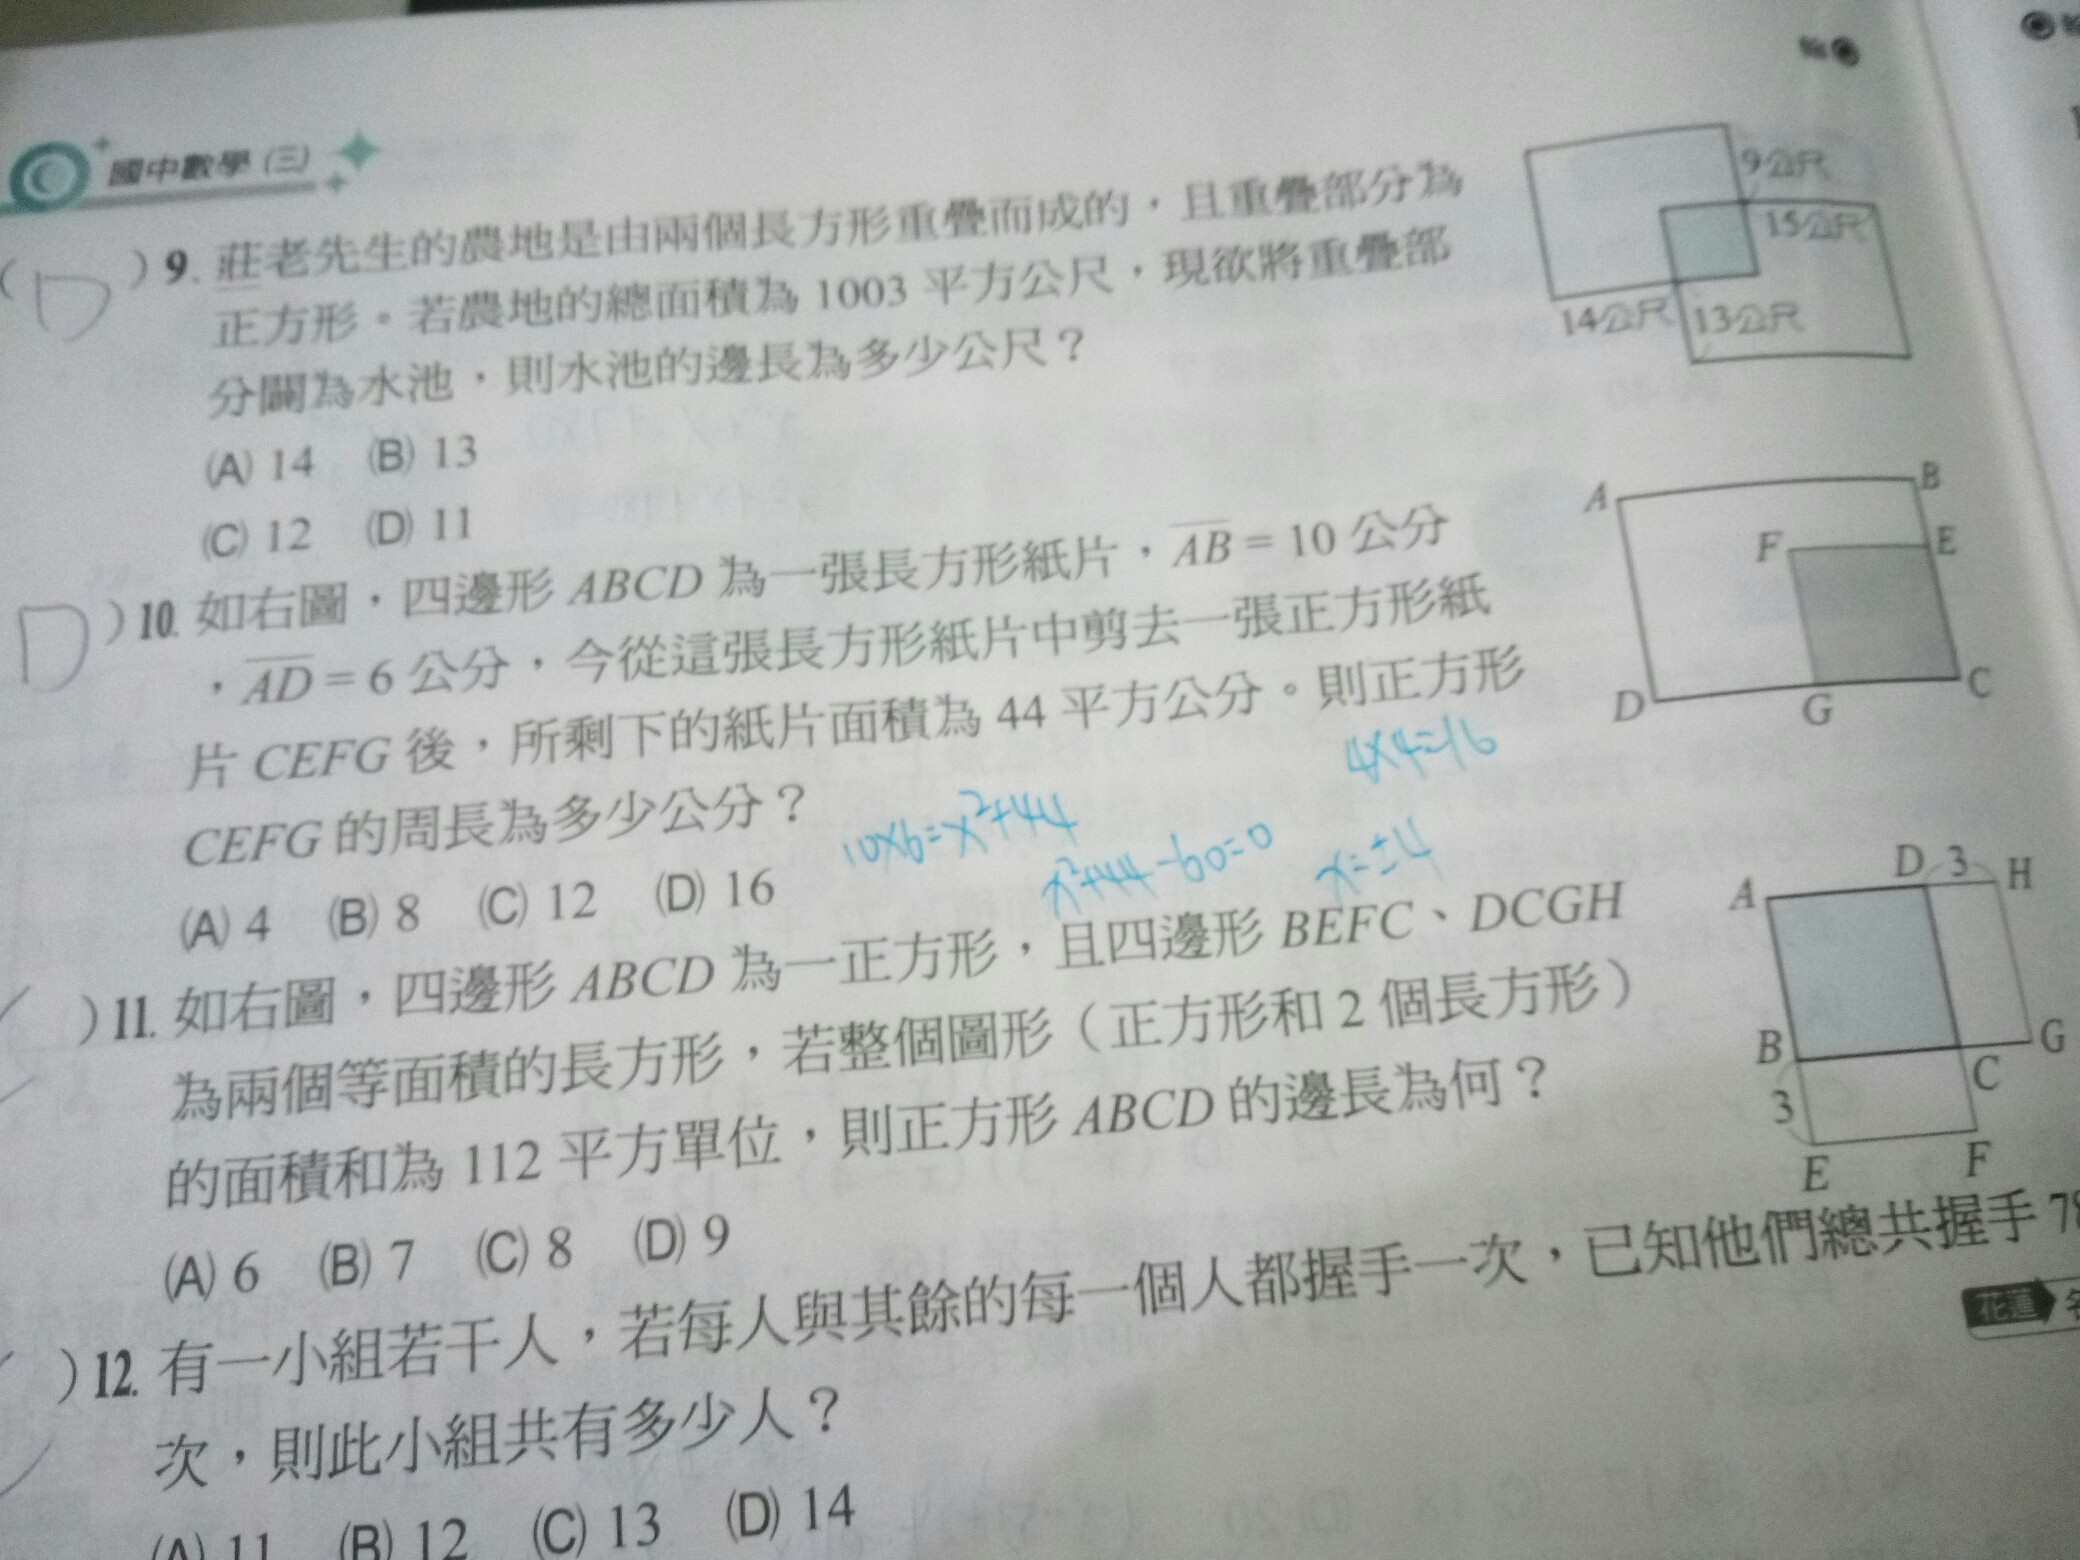 國中數學(三)
9. 莊老先生的農地是由兩個長方形重疊而成的，且重疊部分為
正方形。若農地的總面積為 1003 平方公尺，現欲將重疊部
分闢為水池，則水池的邊長為多少公尺？
(A) 14 (B) 13
(C) 12 (D) 11
9公尺
15公尺
14公尺 13公尺
D
10. 如右圖，四邊形 ABCD 為一張長方形紙片，AB = 10 公分
，AD = 6 公分，今從這張長方形紙片中剪去一張正方形紙
片 CEFG 後，所剩下的紙片面積為 44 平方公分。則正方形
CEFG 的周長為多少公分？
(A) 4 (B) 8 (C) 12 (D) 16
D
4×4=16
10×6=x²+44
x²+44-60=0
x=±4
A B
F E
D G C
11. 如右圖，四邊形 ABCD 為一正方形，且四邊形 BEFC、DCGH
為兩個等面積的長方形，若整個圖形（正方形和 2 個長方形）
的面積和為 112 平方單位，則正方形 ABCD 的邊長為何？
(A) 6 (B) 7 (C) 8 (D) 9
A D 3 H
B C G
3
E F
12. 有一小組若干人，若每人與其餘的每一個人都握手一次，已知他們總共握手 78
次，則此小組共有多少人？
(A) 11 (B) 12 (C) 13 (D) 14
花蓮